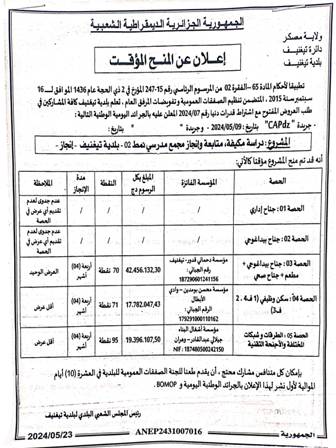 الجمهورية الجزائرية الديمقراطية الشعبية
ولاية معسكر
دائرة تيغنيف
بلدية تيغنيف
إعلان عن المنح المؤقت
تطبيقا لأحكام المادة 65 – الفقرة 02 من المرسوم الرئاسي رقم 15-247 المؤرخ في 2 ذي الحجة عام 1436 الموافق لـ 16
سبتمبر سنة 2015 ، المتضمن تنظيم الصفقات العمومية وتفويضات المرفق العام ، تعلم بلدية تيغنيف كافة المشاركين في
طلب العروض المفتوح مع اشتراط قدرات دنيا رقم 2024/07 المعلن عليه بالجرائد اليومية الوطنية التالية :
"CAPdz" بتاريخ : 2024/05/09 - وجريدة " " بتاريخ :
المشروع : دراسة مكيفة، متابعة وإنجاز مجمع مدرسي نمط 02 - بلدية تيغنيف - إنجاز -
أنه قد تم منح المشروع مؤقتا كالآتي:
الحصة المؤسسة الفائزة المبلغ بكل الرسوم دج النقطة مدة الإنجاز الملاحظة
الحصة 01 : جناح إداري / / / / عدم جدوى لعدم تقديم أي عرض في الحصة
الحصة 02 : جناح بيداغوجي / / / /
الحصة 03 : جناح بيداغوجي + مطعم + جناح صحي مؤسسة دحماني قدور- تيغنيف رقم الجبائي: 187290601241156 42.456.132,30 70 نقطة أربعة (04) أشهر العرض الوحيد
الحصة 04 : سكن وظيفي (1 ف4 ، 2 ف3) مؤسسة محسن بومدين – وادي الأبطال الرقم الجبائي : 179291000110162 17.782.047,43 71 نقطة أربعة (04) أشهر أقل عرض
الحصة 05 : الطرقات و شبكات المختلفة والأجنحة التقنية مؤسسة أشغال البناء جيلالي عبدالقادر - وهران NIF : 187480500242150 19.396.107,50 95 نقطة أربعة (04) أشهر أقل عرض
بإمكان كل متنافس مشارك محتج ، أن يقدم طعنا للجنة الصفقات العمومية للبلدية في العشرة (10) أيام
الموالية لأول نشر لهذا الإعلان بالجرائد الوطنية اليومية و BOMOP .
رئيس المجلس الشعبي البلدي لبلدية تيغنيف
الجمهورية ANEP2431007016 2024/05/23